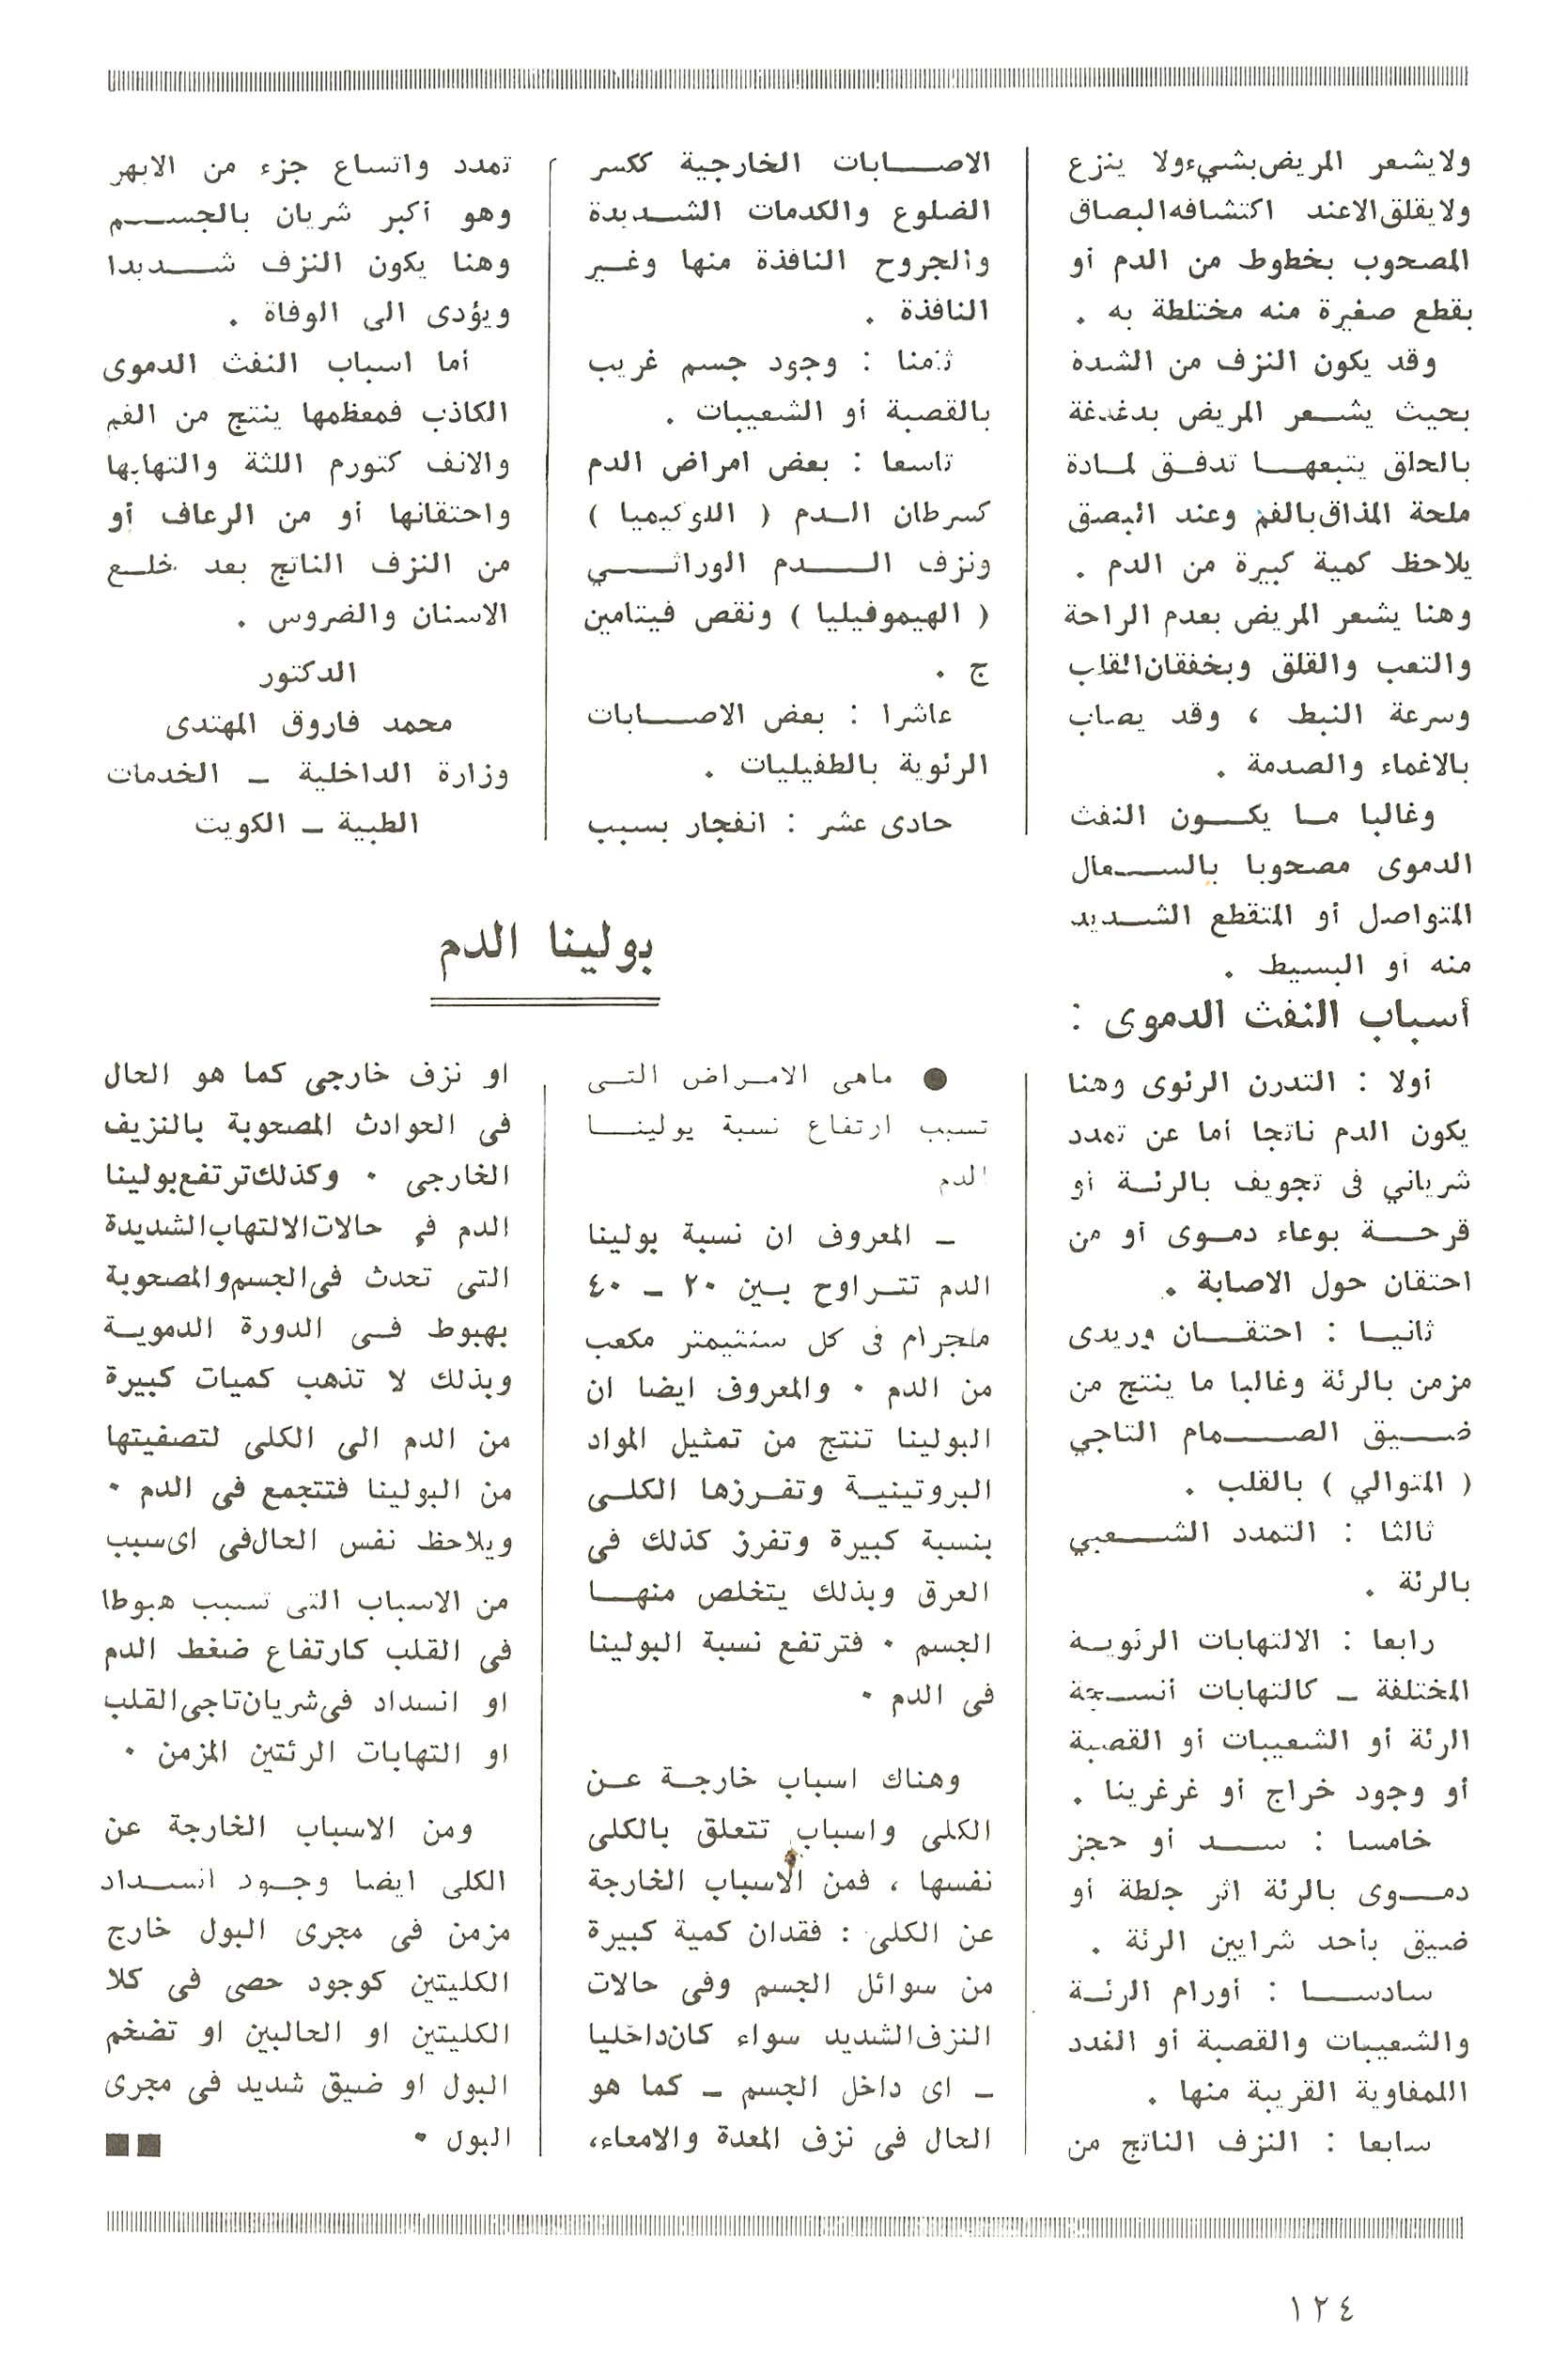 ولايشعر المريض بشيء ولا ينزع
ولايقلق الاعند اكتشافه البصاق
المصحوب بخطوط من الدم أو
بقطع صغيرة منه مختلطة به .
وقد يكون النزف من الشدة
بحيث يشعر المريض بدغدغة
بالحلق يتبعها تدفق لمادة
ملحة المذاق بالفم وعند البصق
يلاحظ كمية كبيرة من الدم .
وهنا يشعر المريض بعدم الراحة
والتعب والقلق وبخفقان القلب
وسرعة النبط ، وقد يصاب
بالاغماء والصدمة .
وغالبا ما يكون النفث
الدموى مصحوبا بالسعال
المتواصل أو المتقطع الشديد
منه أو البسيط .
أسباب النفث الدموى :
أولا : التدرن الرئوى وهنا
يكون الدم ناتجا أما عن تمدد
شرياني فى تجويف بالرئة أو
قرحة بوعاء دموى أو من
احتقان حول الاصابة .
ثانيا : احتقان وريدى
مزمن بالرئة وغالبا ما ينتج من
ضيق الصمام التاجي
( المتوالي ) بالقلب .
ثالثا : التمدد الشعبي
بالرئة .
رابعا : الالتهابات الرئوية
المختلفة ــ كالتهابات أنسجة
الرئة أو الشعيبات أو القصبة
أو وجود خراج أو غرغرينا .
خامسا : سد أو حجز
دموى بالرئة اثر جلطة أو
ضيق بأحد شرايين الرئة .
سادسا : أورام الرئة
والشعيبات والقصبة أو الغدد
اللمفاوية القريبة منها .
سابعا : النزف الناتج من
الاصابات الخارجية ككسر
الضلوع والكدمات الشديدة
والجروح النافذة منها وغير
النافذة .
ثامنا : وجود جسم غريب
بالقصبة أو الشعيبات .
تاسعا : بعض امراض الدم
كسرطان الدم ( اللوكيميا )
ونزف الدم الوراثي
( الهيموفيليا ) ونقص فيتامين
ج .
عاشرا : بعض الاصابات
الرئوية بالطفيليات .
حادى عشر : انفجار بسبب
تمدد واتساع جزء من الابهر
وهو أكبر شريان بالجسم
وهنا يكون النزف شديدا
ويؤدى الى الوفاة .
أما اسباب النفث الدموى
الكاذب فمعظمها ينتج من الفم
والانف كتورم اللثة والتهابها
واحتقانها أو من الرعاف أو
من النزف الناتج بعد خلع
الاسنان والضروس .
الدكتور
محمد فاروق المهتدى
وزارة الداخلية ــ الخدمات
الطبية ــ الكويت
بولينا الدم
● ماهى الامراض التى
تسبب ارتفاع نسبة يولينا
الدم
ــ المعروف ان نسبة بولينا
الدم تتراوح بين ٢٠ ــ ٤٠
ملجرام فى كل سنتيمتر مكعب
من الدم ٠ والمعروف ايضا ان
البولينا تنتج من تمثيل المواد
البروتينية وتفرزها الكلى
بنسبة كبيرة وتفرز كذلك فى
العرق وبذلك يتخلص منها
الجسم ٠ فترتفع نسبة البولينا
فى الدم ٠
وهناك اسباب خارجة عن
الكلى واسباب تتعلق بالكلى
نفسها ، فمن الاسباب الخارجة
عن الكلى : فقدان كمية كبيرة
من سوائل الجسم وفى حالات
النزف الشديد سواء كان داخليا
ــ اى داخل الجسم ــ كما هو
الحال فى نزف المعدة والامعاء،
او نزف خارجى كما هو الحال
فى الحوادث المصحوبة بالنزيف
الخارجى ٠ وكذلك ترتفع بولينا
الدم فى حالات الالتهاب الشديدة
التى تحدث فى الجسم والمصحوبة
بهبوط فى الدورة الدموية
وبذلك لا تذهب كميات كبيرة
من الدم الى الكلى لتصفيتها
من البولينا فتتجمع فى الدم ٠
ويلاحظ نفس الحال فى اى سبب
من الاسباب التى تسبب هبوطا
فى القلب كارتفاع ضغط الدم
او انسداد فى شريان تاجى القلب
او التهابات الرئتين المزمن ٠
ومن الاسباب الخارجة عن
الكلى ايضا وجود انسداد
مزمن فى مجرى البول خارج
الكليتين كوجود حصى فى كلا
الكليتين او الحالبين او تضخم
البول او ضيق شديد فى مجرى
البول ٠ ■■
١٢٤